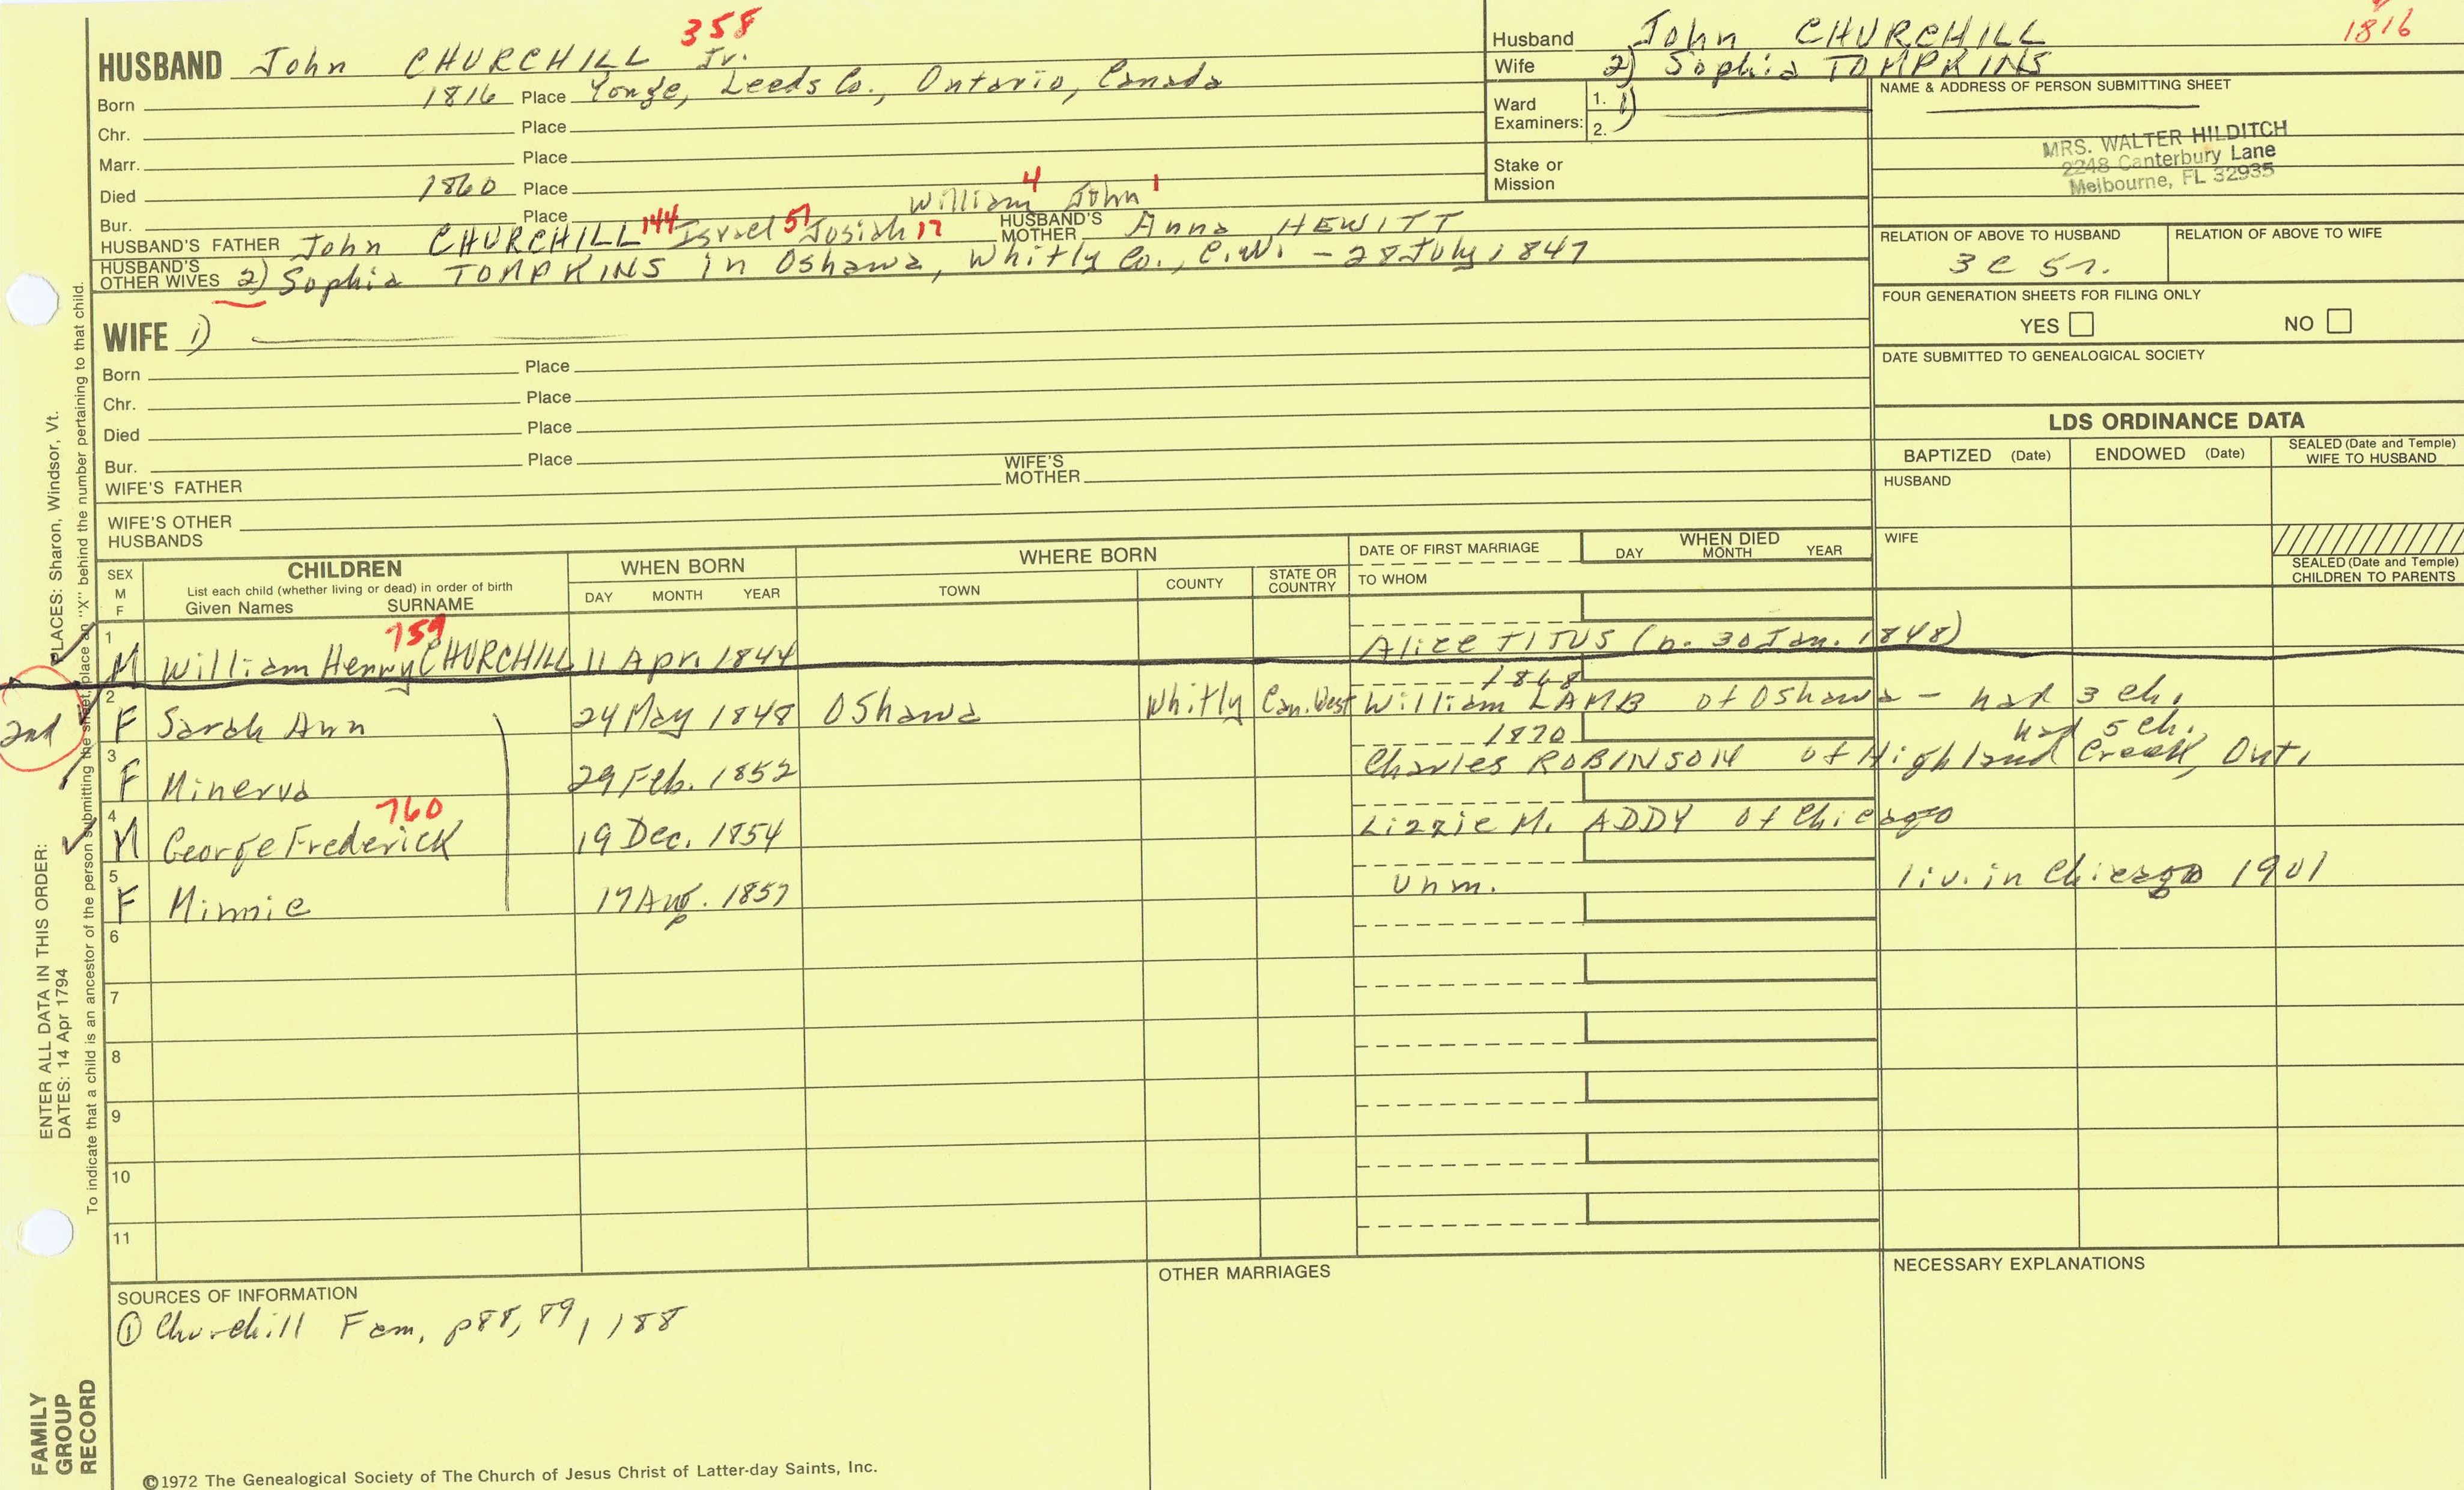 358
HUSBAND John CHURCHILL Jr.
Born 1816 Place Yonge, Leeds Co., Ontario, Canada
Chr. Place
Marr. Place
Died 1860 Place
Bur. Place
William 4 John 1
HUSBAND'S FATHER John CHURCHILL 144 Israel 51 Josiah 17 HUSBAND'S MOTHER Anna HEWITT
HUSBAND'S OTHER WIVES 2) Sophia TOMPKINS in Oshawa, Whitly Co., C.W. - 28 July 1847
WIFE 1)
Born Place
Chr. Place
Died Place
Bur. Place
WIFE'S FATHER WIFE'S MOTHER
WIFE'S OTHER HUSBANDS
Husband John CHURCHILL 1816
Wife 2) Sophia TOMPKINS
Ward Examiners: 1. 1)
2.
Stake or Mission
NAME & ADDRESS OF PERSON SUBMITTING SHEET
MRS. WALTER HILDITCH
2248 Canterbury Lane
Melbourne, FL 32935
RELATION OF ABOVE TO HUSBAND RELATION OF ABOVE TO WIFE
3 C 5r.
FOUR GENERATION SHEETS FOR FILING ONLY
YES NO
DATE SUBMITTED TO GENEALOGICAL SOCIETY
LDS ORDINANCE DATA
BAPTIZED (Date) ENDOWED (Date) SEALED (Date and Temple) WIFE TO HUSBAND
HUSBAND
WIFE
SEALED (Date and Temple) CHILDREN TO PARENTS
SEX M F
CHILDREN
List each child (whether living or dead) in order of birth
Given Names SURNAME
WHEN BORN
DAY MONTH YEAR
WHERE BORN
TOWN COUNTY STATE OR COUNTRY
DATE OF FIRST MARRIAGE
TO WHOM
WHEN DIED
DAY MONTH YEAR
759
1 M William Henry CHURCHILL 11 Apr. 1844 Alice TITUS (b. 30 Jan. 1848)
1868
2nd
2 F Sarah Ann 24 May 1848 Oshawa Whitly Can. West William LAMB of Oshawa - had 3 ch.
1870 had 5 ch.
3 F Minerva 29 Feb. 1852 Charles ROBINSON of Highland Creek, Ont.
760
4 M George Frederick 19 Dec. 1854 Lizzie M. ADDY of Chicago
5 F Minnie 17 Aug. 1857 Unm. liv. in Chicago 1901
6
7
8
9
10
11
SOURCES OF INFORMATION
① Churchill Fam, p88, 89, 188
OTHER MARRIAGES
NECESSARY EXPLANATIONS
©1972 The Genealogical Society of The Church of Jesus Christ of Latter-day Saints, Inc.
FAMILY GROUP RECORD
ENTER ALL DATA IN THIS ORDER:
DATES: 14 Apr 1794
PLACES: Sharon, Windsor, Vt.
To indicate that a child is an ancestor of the person submitting the sheet, place an "X" behind the number pertaining to that child.